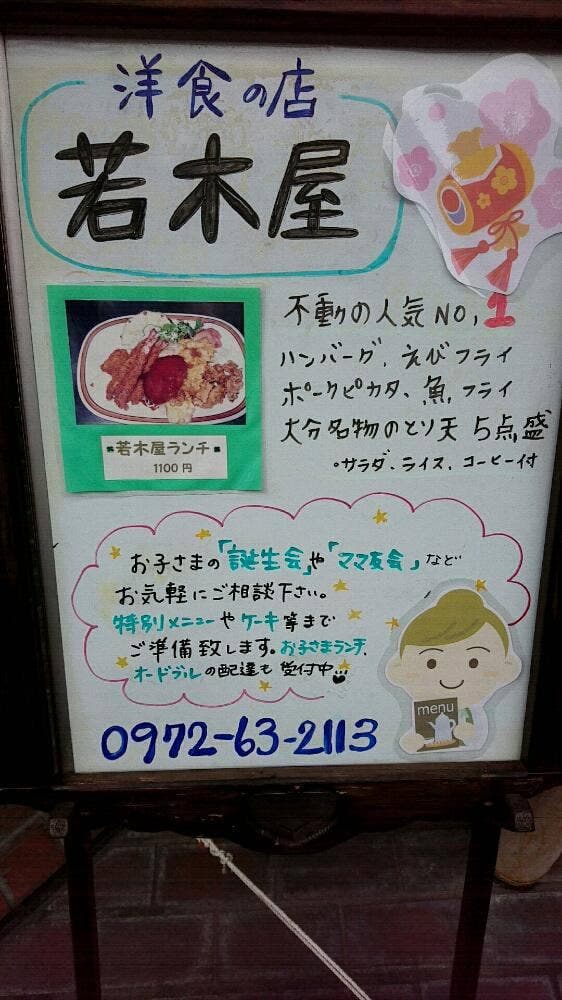 洋食の店
若木屋
不動の人気NO,1
ハンバーグ、えびフライ
ポークピカタ、魚フライ
大分名物のとり天 5点盛
・サラダ、ライス、コーヒー付
若木屋ランチ
1100円
お子さまの「誕生会」や「ママ友会」など
お気軽にご相談下さい。
特別メニューやケーキ等まで
ご準備致します。お子さまランチ、
オードブルの配達も受付中
menu
0972-63-2113